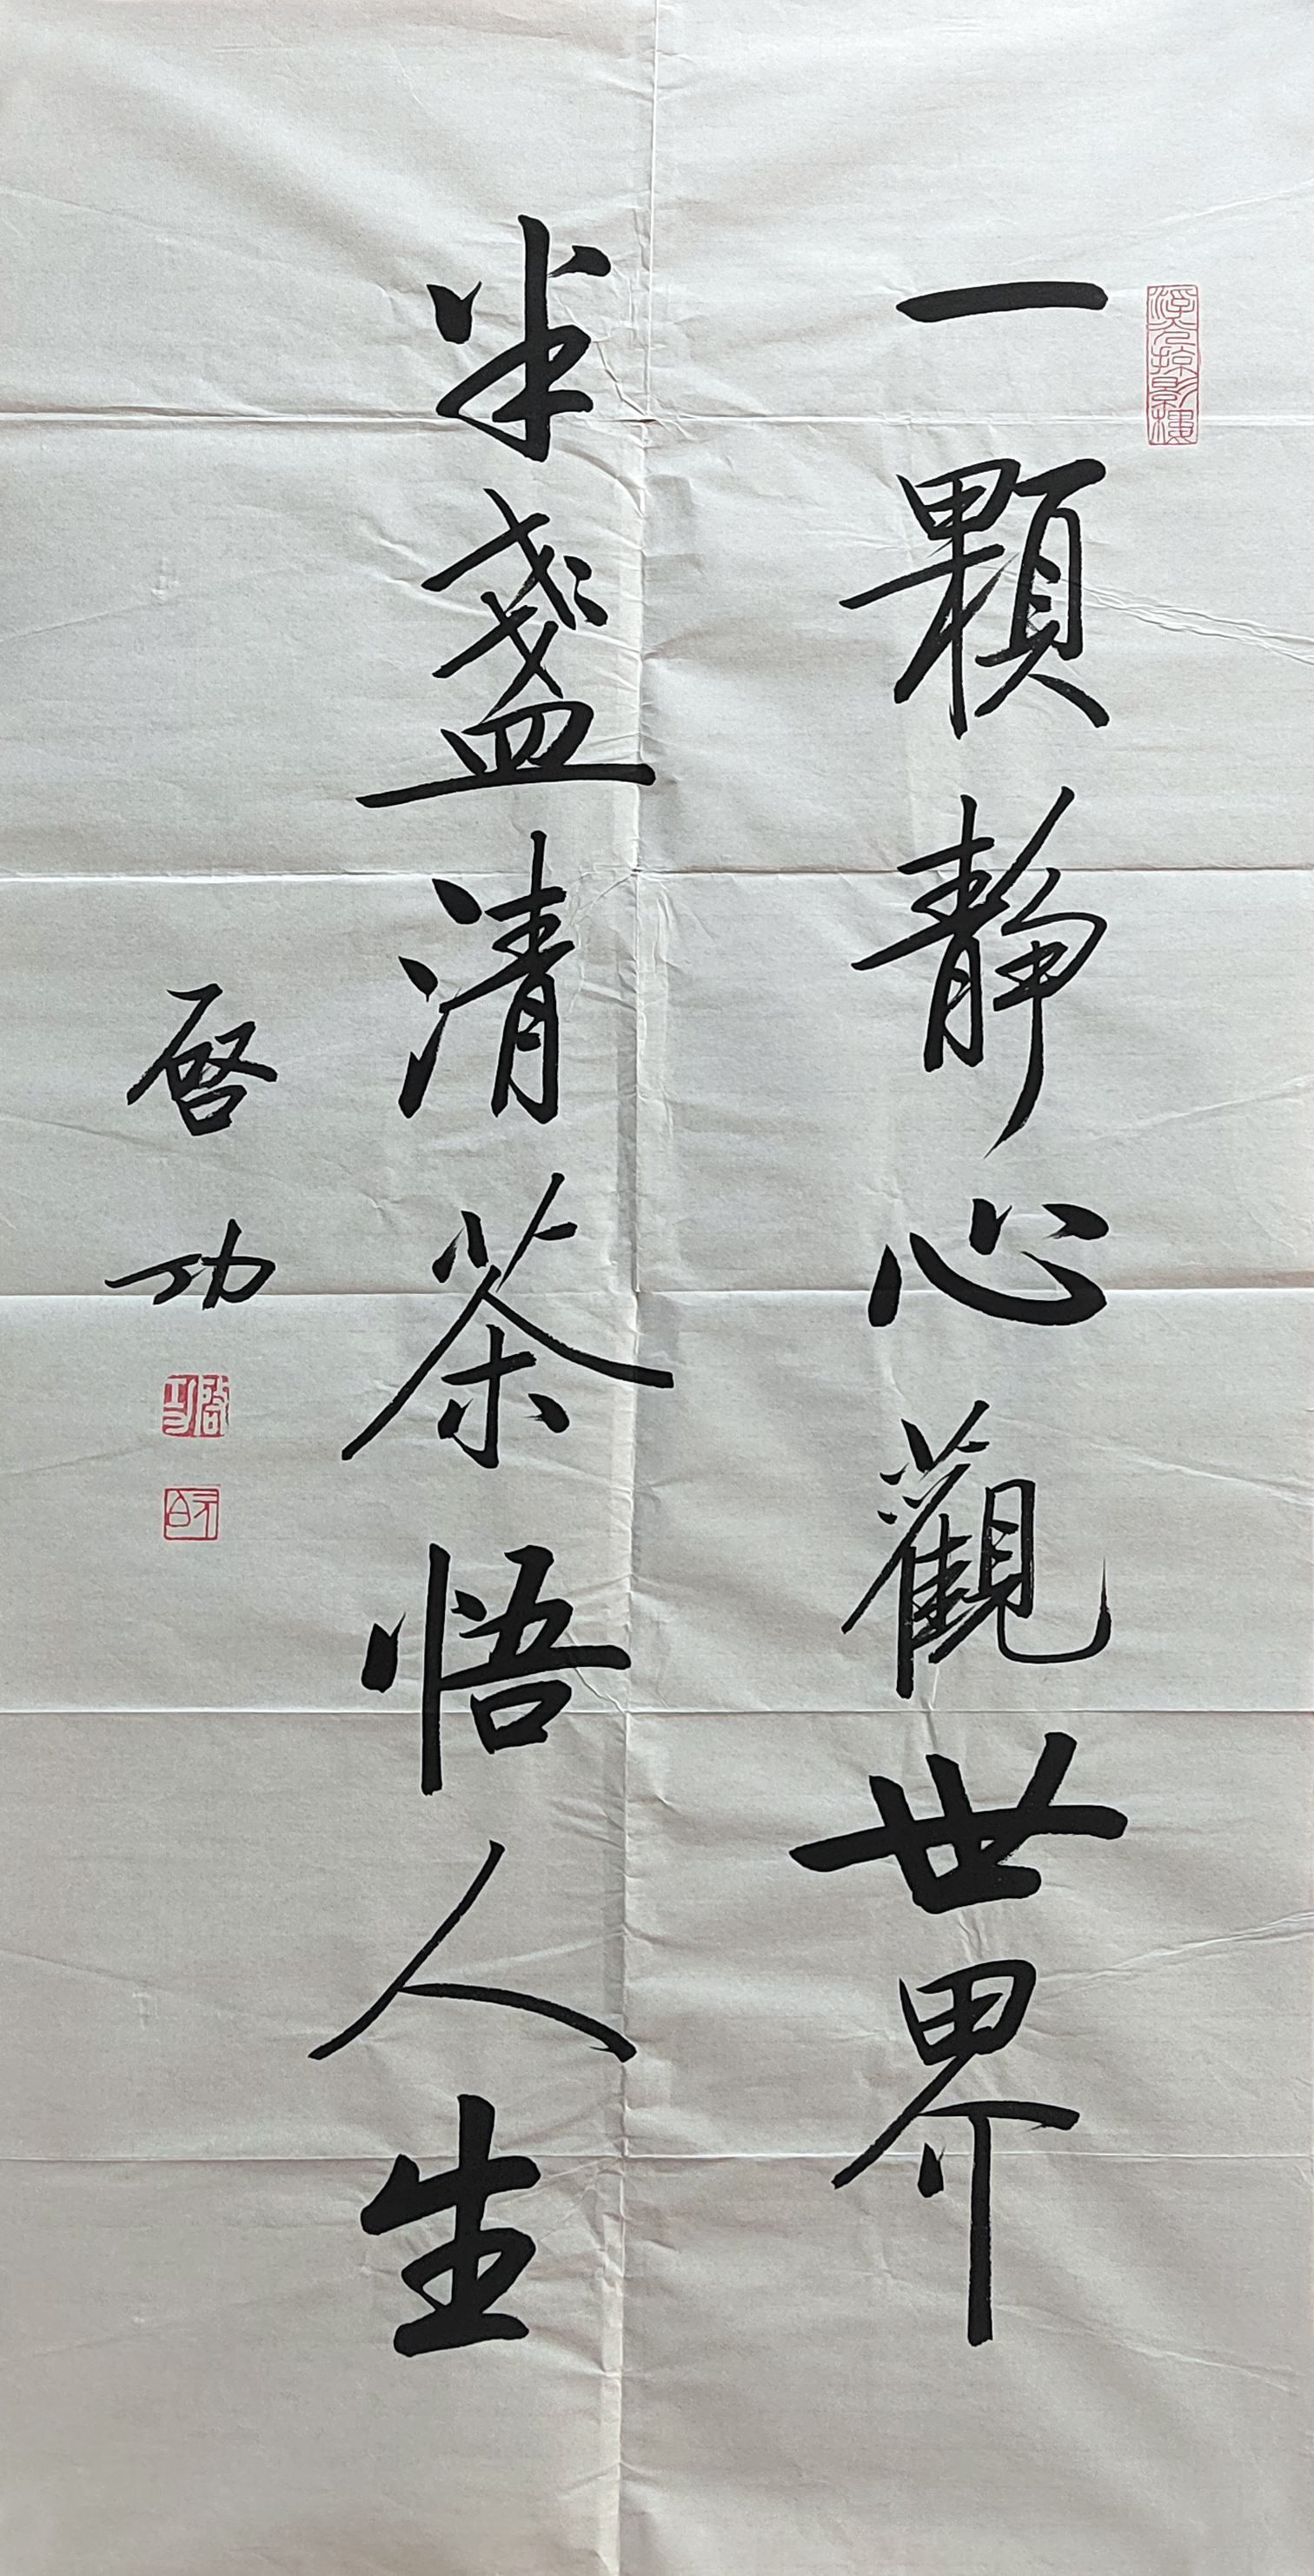 一顆靜心觀世界
半盞清茶悟人生
啓功
啓功